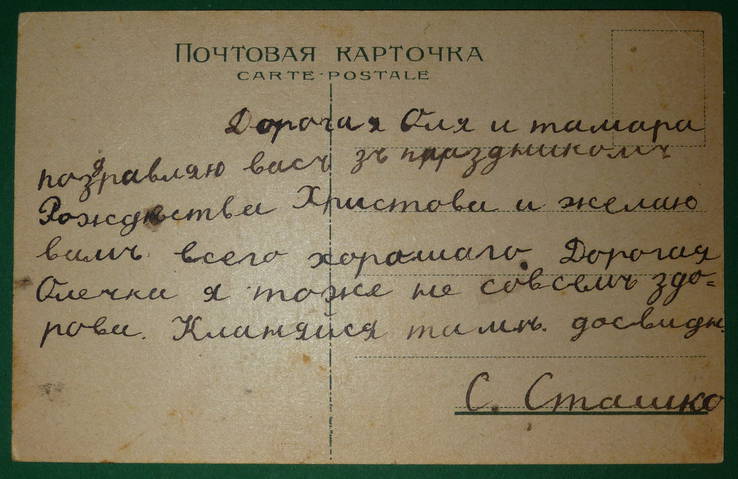 ПОЧТОВАЯ КАРТОЧКА
CARTE-POSTALE
Дорогая Оля и тамара
поздравляю васъ зъ праздникомъ
Рождества Христова и желаю
вамъ всего хорошаго. Дорогая
Олечка я тоже не совсемъ здо=
рова. Кланяйся тамъ. досвидн.
С. Сташко